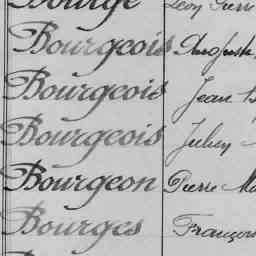 Bourge Léon Pierre
Bourgeois Auguste
Bourgeois Jean
Bourgeois Julien
Bourgeon Pierre
Bourges François